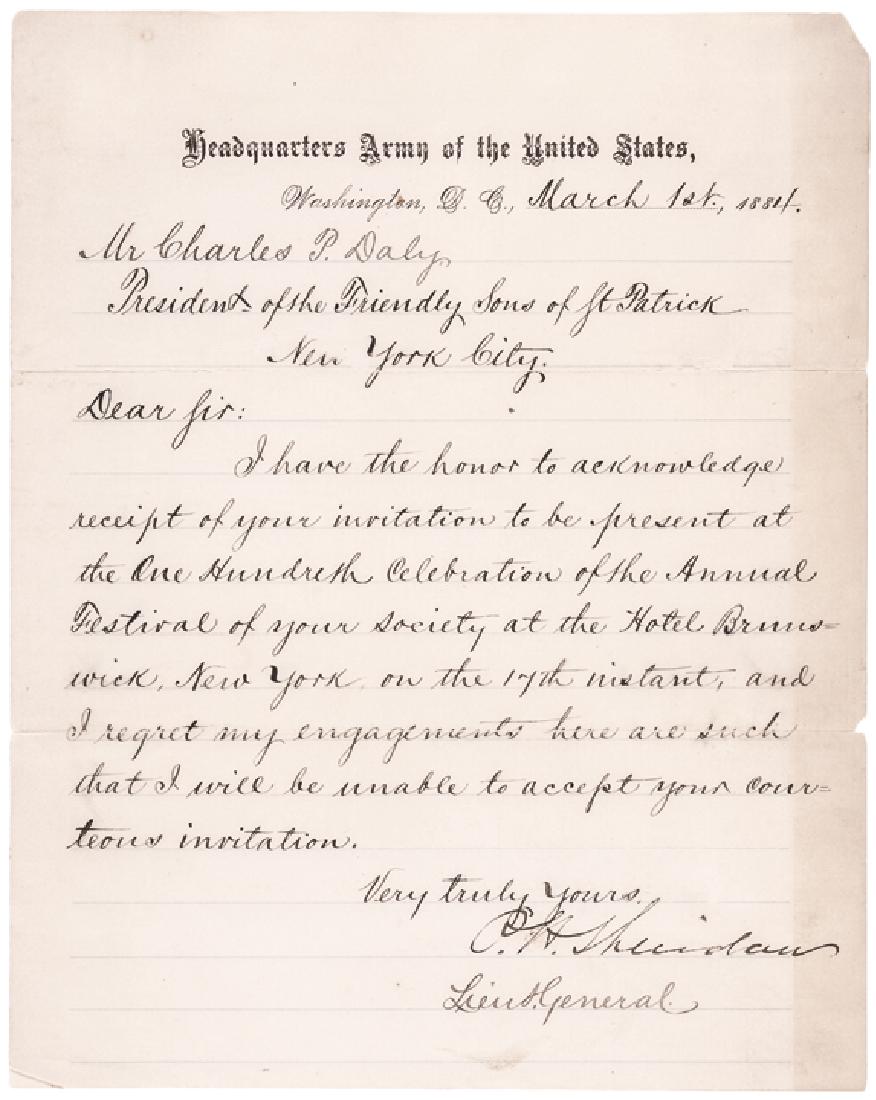 Headquarters Army of the United States,
Washington, D. C., March 1st, 1884.
Mr Charles P. Daly
President of the Friendly Sons of St Patrick
New York City.
Dear Sir:
I have the honor to acknowledge
receipt of your invitation to be present at
the One Hundreth Celebration of the Annual
Festival of your society at the Hotel Bruns=
wick, New York, on the 17th instant, and
I regret my engagements here are such
that I will be unable to accept your cour=
teous invitation.
Very truly yours.
P. H. Sheridan
Lieut. General.